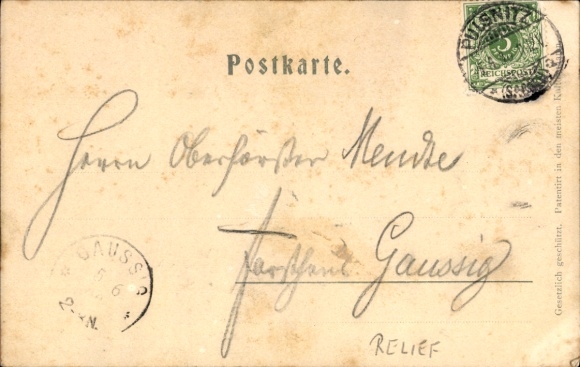 PULSNITZ
5
REICHSPOST
(SACHSEN)
Postkarte.
Herrn Oberförster Mendte
Forsthaus Gaussig
GAUSSIG
5
6
2-3N.
RELIEF
Gesetzlich geschützt. Patentirt in den meisten